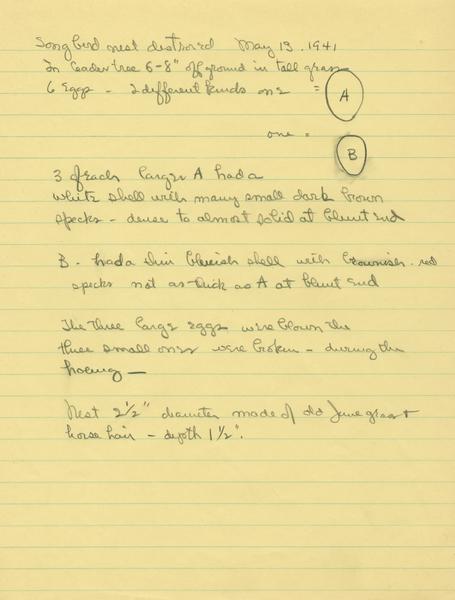 Song bird nest destroyed May 13, 1941
In Ceadar tree 6-8" off ground in tall grass
6 Eggs - 2 different kinds one = A
one = B
3 of each larger A had a
white shell with many small dark brown
specks - dense to almost solid at blunt end
B - had a thin bluish shell with brownish-red
specks not as thick as A at blunt end
The three large eggs were blown the
three small ones were broken - during the
hoeing -
Nest 2½" diameter made of old June grass +
horse hair - depth 1½".